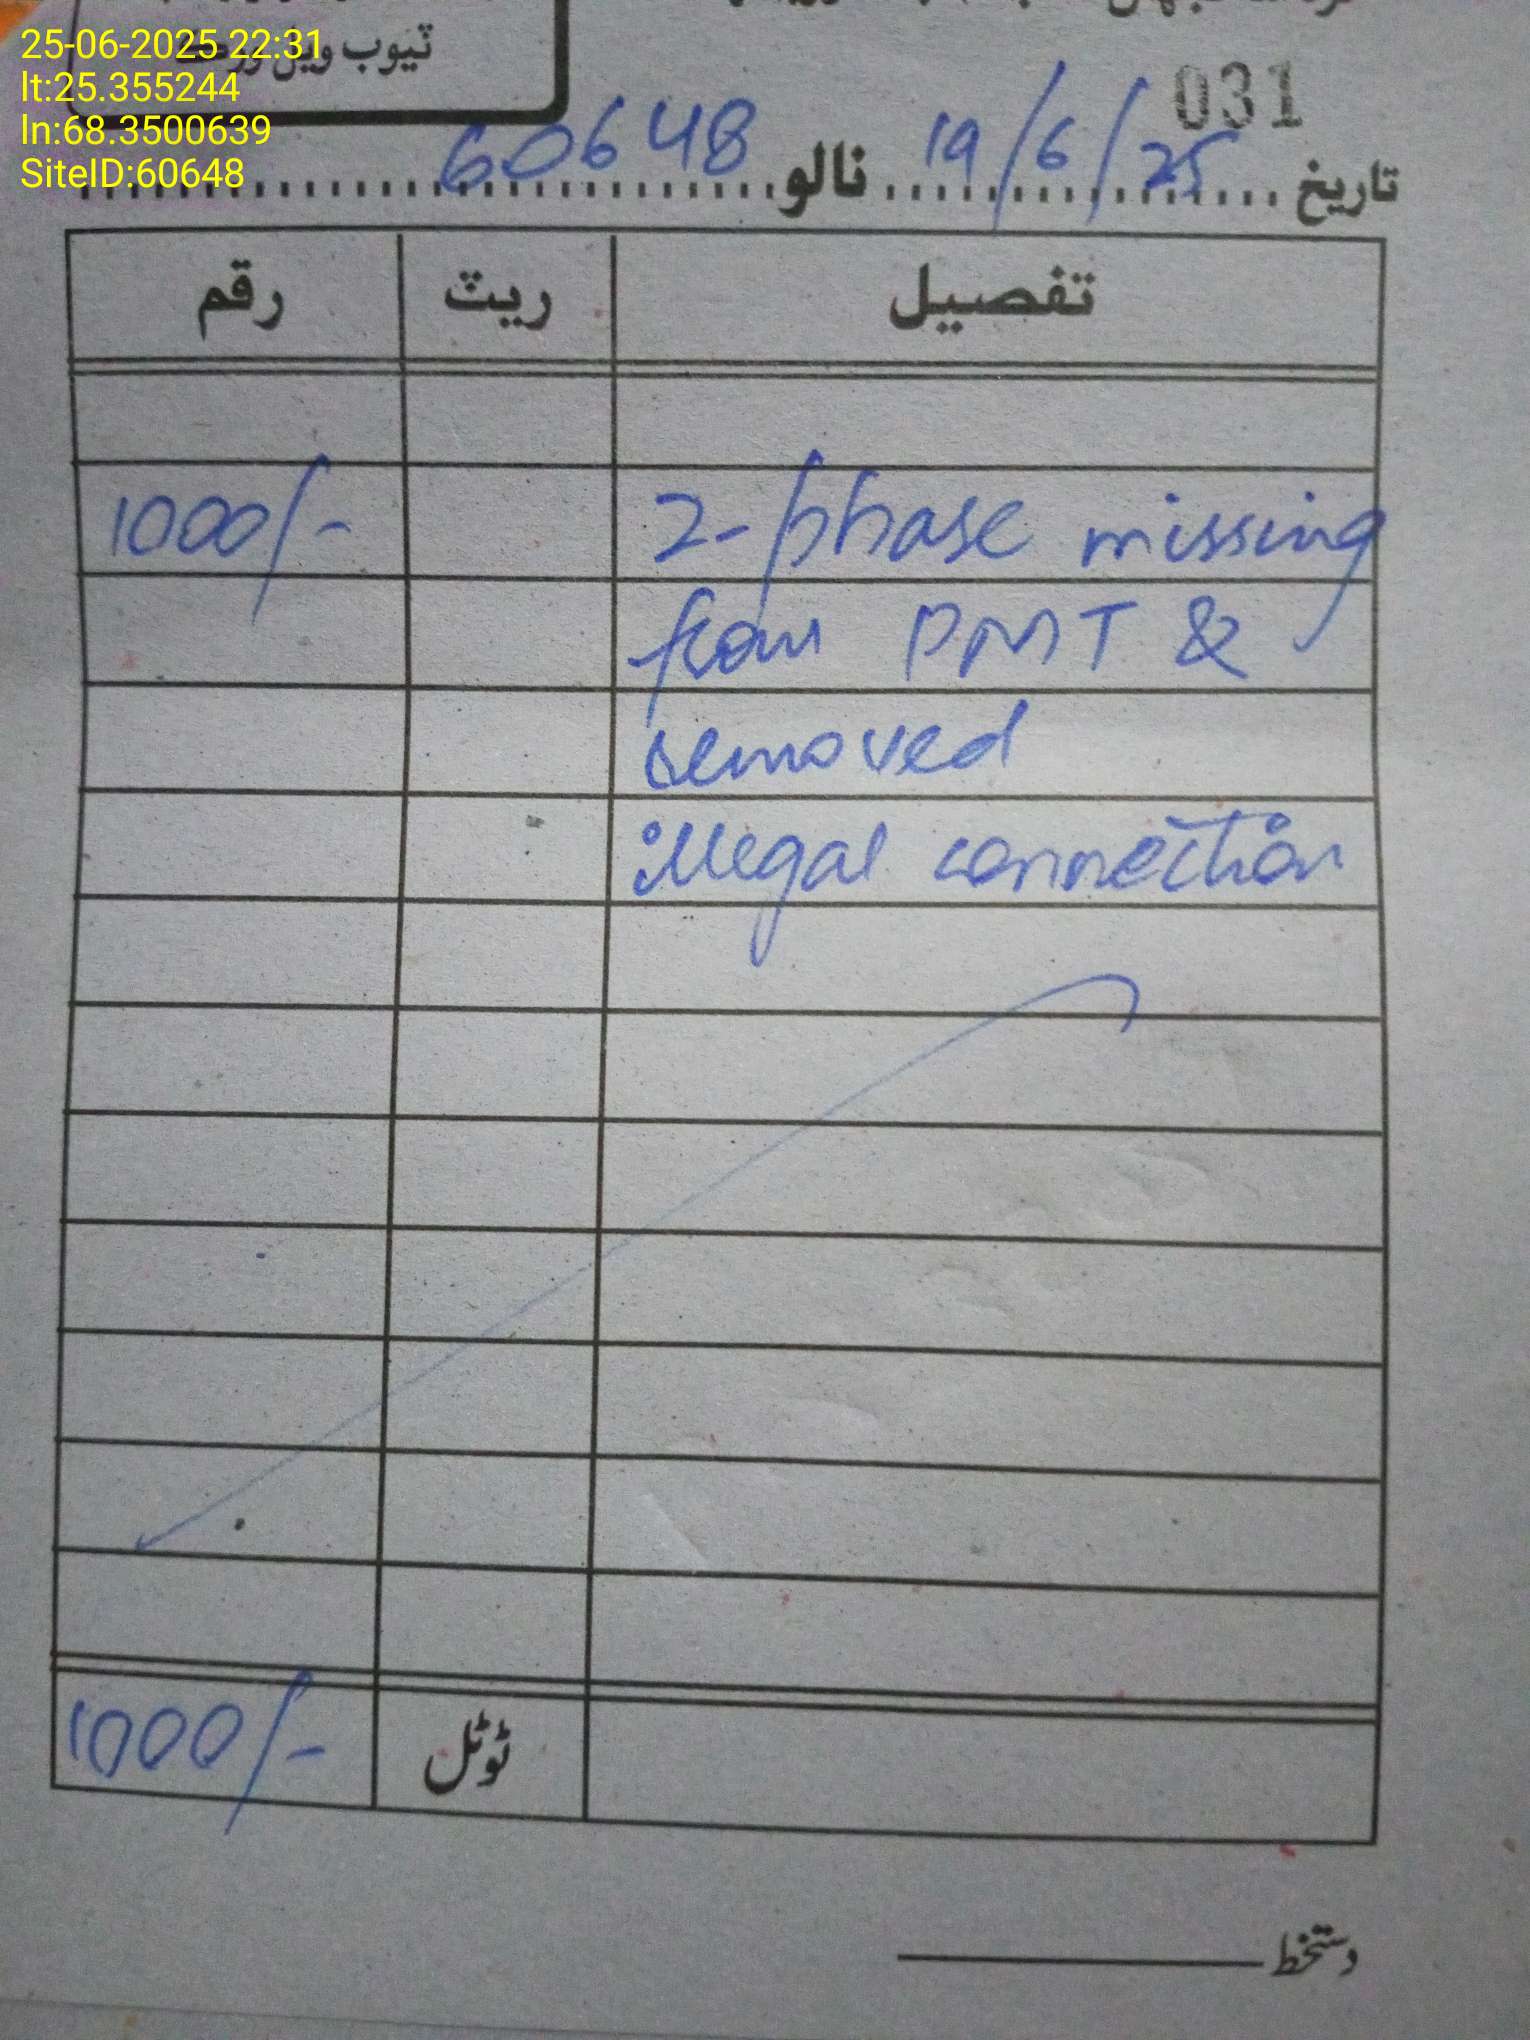 25-06-2025 22:31
lt:25.355244
ln:68.3500639
SiteID:60648
ٽيوب ويل ورڪ
031
تاريخ 19/6/25 نالو 60648
تفصيل ريٽ رقم
2-phase missing 1000/-
from PMT &
removed
illegal connection
ٹوٹل 1000/-
دستخط